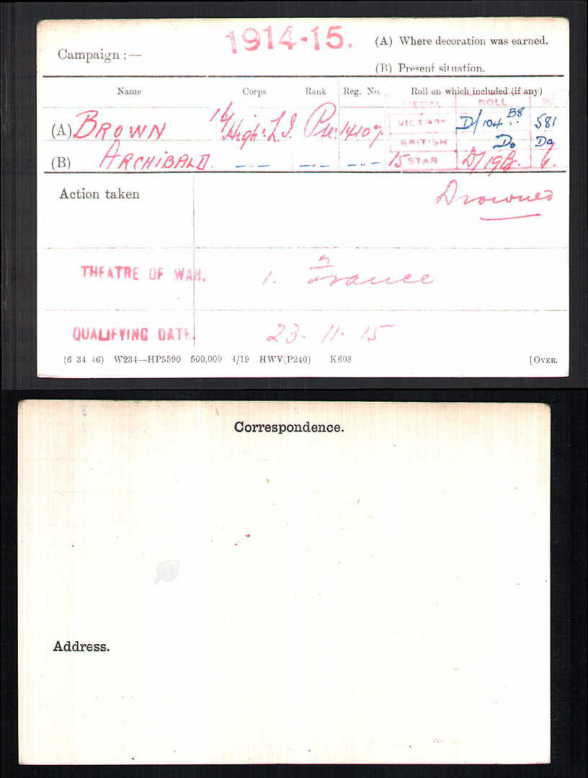 1914-15.
Campaign :—
(A) Where decoration was earned.
(B) Present situation.
Name Corps Rank Reg. No. Roll on which included (if any)
MEDAL ROLL
(A) BROWN High. L.I. Pte 14107 VICTORY D/104 B8 581
BRITISH Do Do
(B) ARCHIBALD. — " — — " — — " — 15 STAR D/19B. 6.
Action taken
Drowned
THEATRE OF WAR. 1. France
QUALIFYING DATE. 23-11-15
(6 34 46) W234—HP5590 500,000 4/19 HWV(P240) K608 [OVER.
Correspondence.
Address.